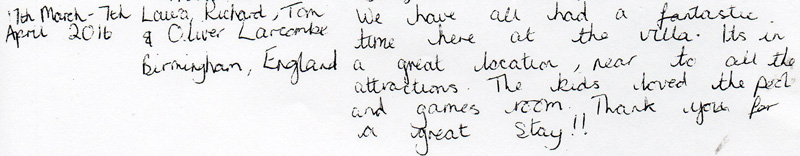 17th March - 7th
April 2016
Laura, Richard, Tom
& Oliver Larcombe
Birmingham, England
We have all had a fantastic
time here at the villa. Its in
a great location, near to all the
attractions. The kids loved the pool
and games room. Thank you for
a great stay!!